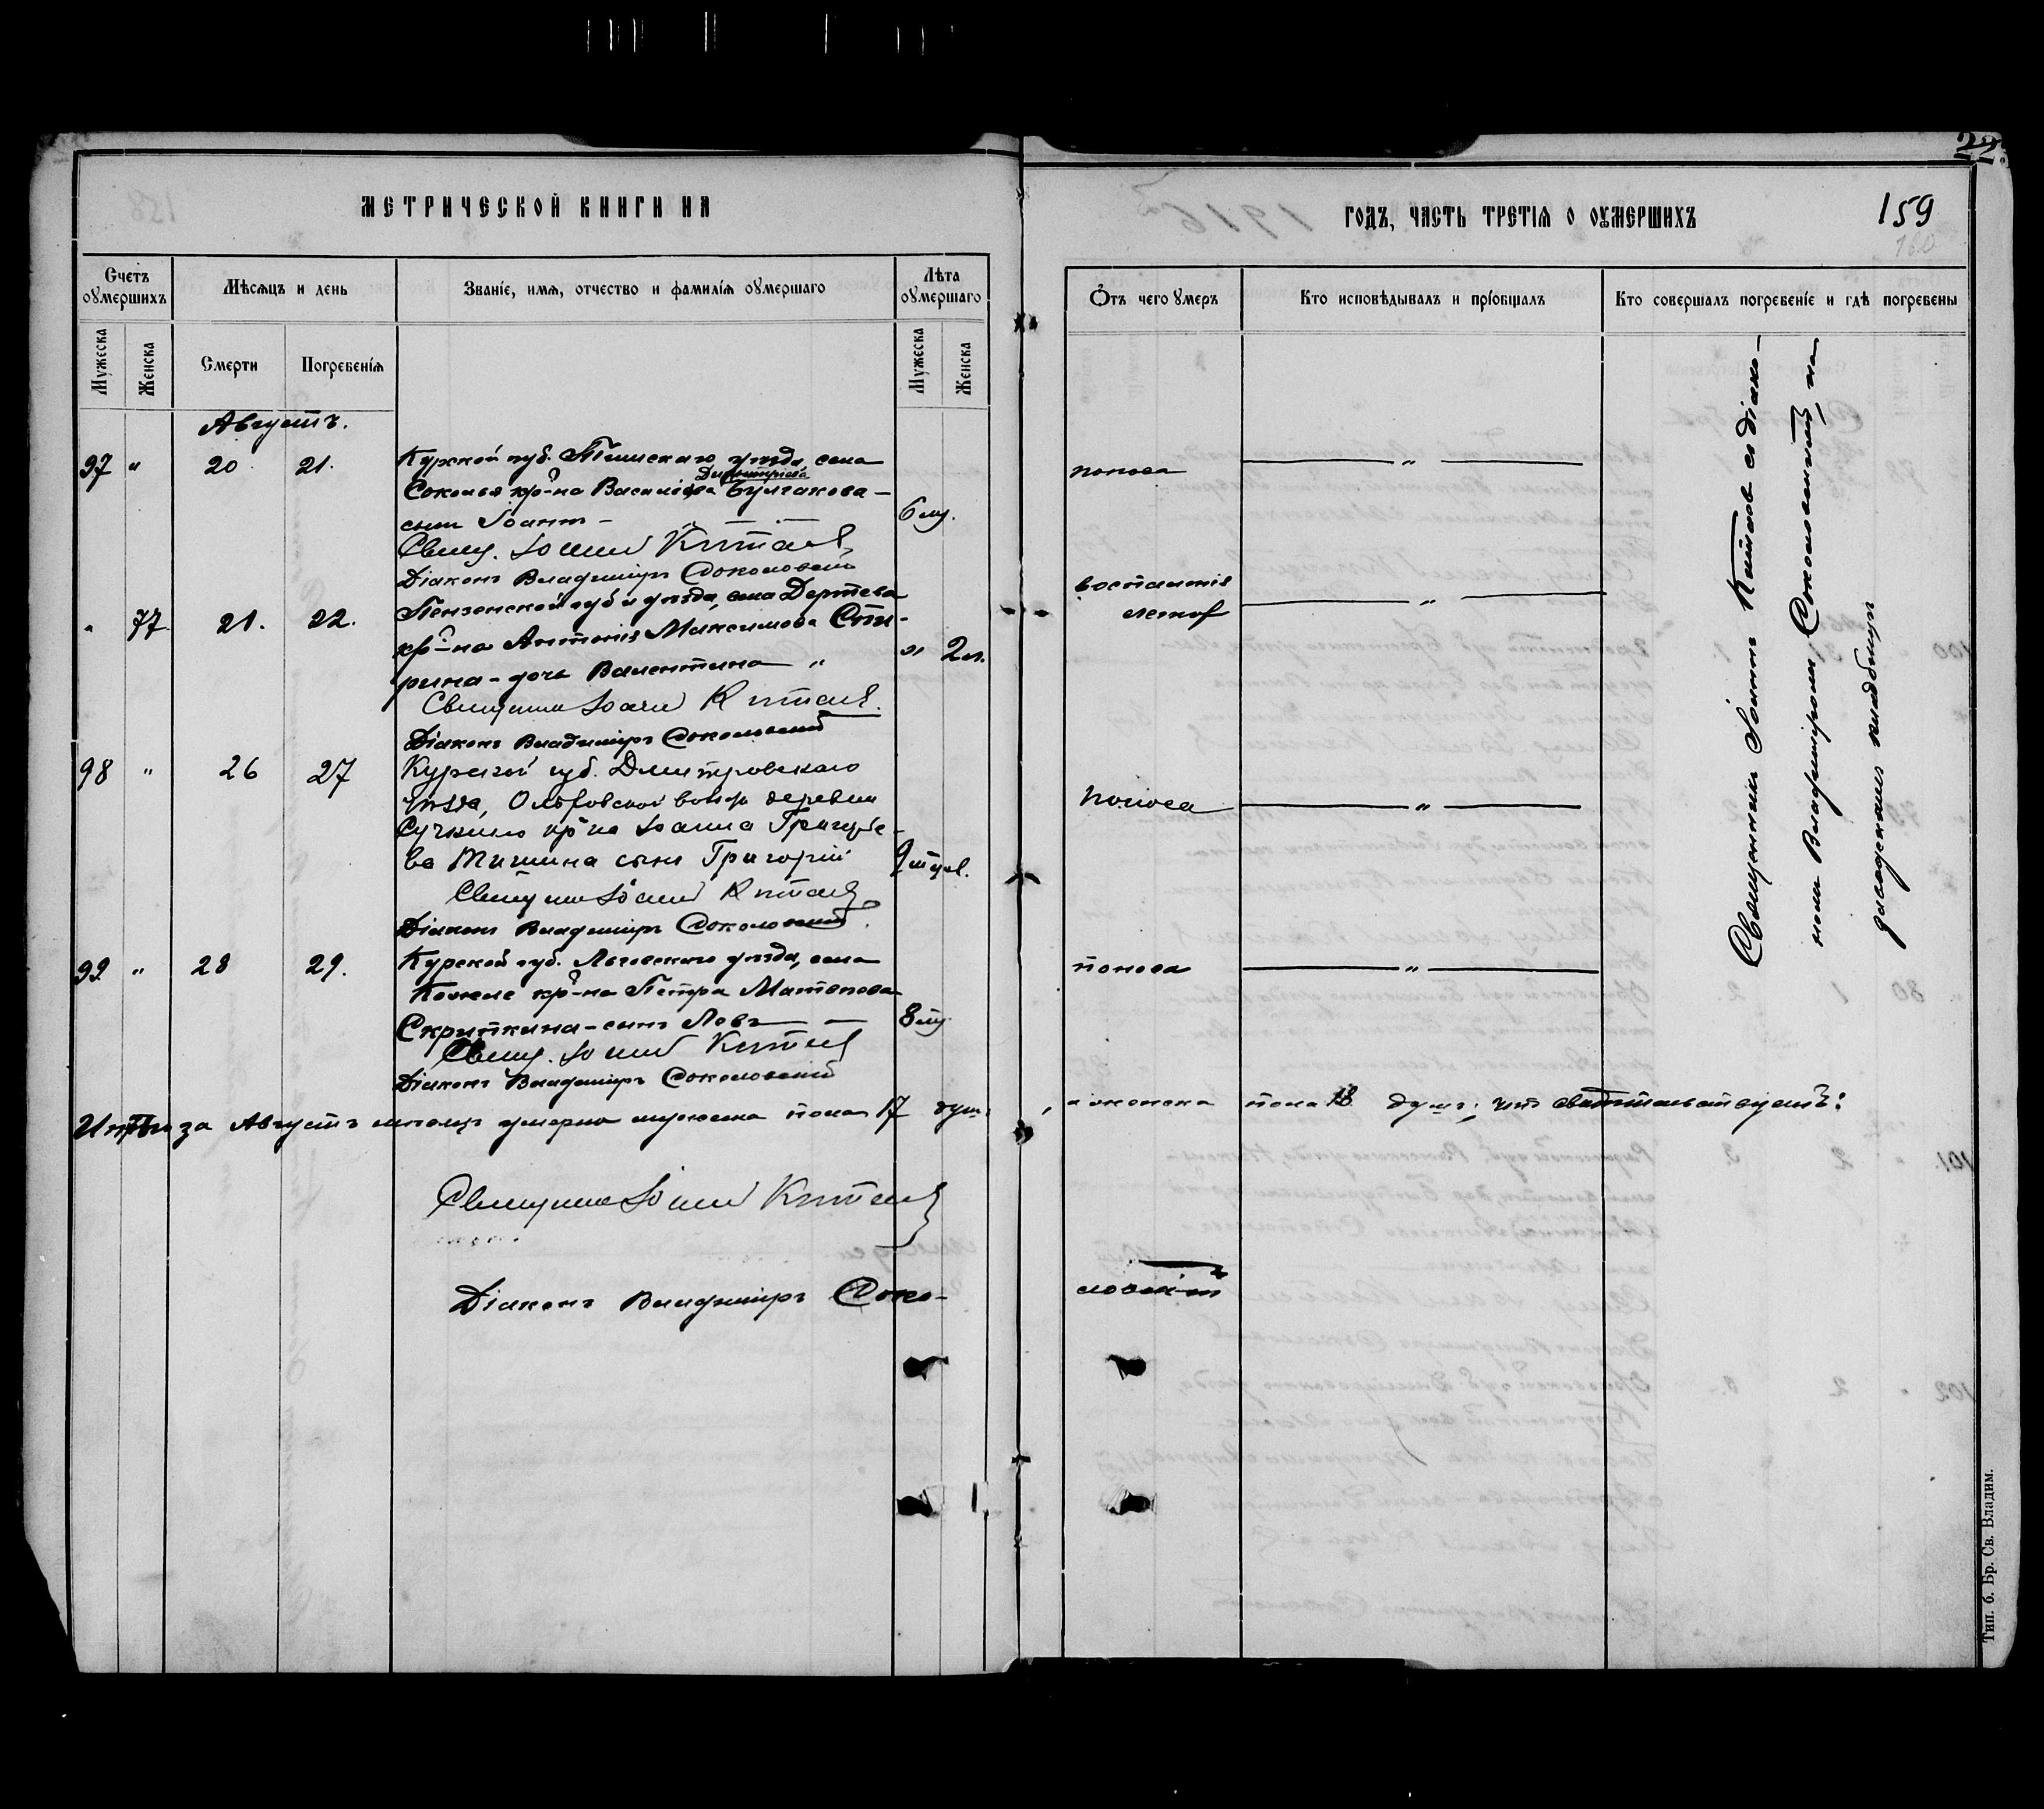 22.
МЕТРИЧЕСКОЙ КНИГИ НА
ГОДЪ, ЧАСТЬ ТРЕТІѦ О ОУМЕРШИХЪ
159
160
Счетъ оумершихъ
Мѣсѧцъ и день
Званіе, имѧ, отчество и фамиліѧ оумершаго
Лѣта оумершаго
Отъ чего умеръ
Кто исповѣдывалъ и пріобщалъ
Кто совершалъ погребеніе и гдѣ погребены
Мужеска
Женска
Смерти
Погребеніѧ
Мужеска
Женска
Августъ.
97 " 20 21.
Курской губ. Тимскаго уѣзда, села
Дмитріева
Соколья кр-на Василія Булгакова –
сынъ Іоаннъ –
6 м.
поноса
"
Свящ. Іоаннъ Китаевъ
Діаконъ Владиміръ Соколовскій
" 77 21. 22.
Пензенской губ и уѣзда, села Дертева
кр-на Антонія Максимова Спи-
рина – дочь Валентина "
" 2 л.
воспаленія
легких
"
Священникъ Іоаннъ Китаевъ.
Діаконъ Владиміръ Соколовскій
98 " 26 27
Курской губ. Дмитровскаго
уѣзда, волос. деревни
кр-на Іоанна Григорье-
ва Тишина сынъ Григорій
9 мѣс.
поноса
"
Священникъ Іоаннъ Китаевъ
Діаконъ Владиміръ Соколовскій.
99 " 28 29.
Курской губ. Льговскаго уѣзда, села
кр-на Петра
Скрипкина – сынъ Левъ –
8 м.
поноса
"
Свящ. Іоаннъ Китаевъ
Діаконъ Владиміръ Соколовскій
Итого за Августъ мѣсяцъ умерло мужеска пола 17 душ.
, а женска пола 18 душ, что свидѣтельствуемъ:
Священникъ Іоаннъ Китаевъ
Діаконъ Владиміръ Соколовскій
Священникъ Іоаннъ Китаевъ съ діако-
номъ Владиміромъ Соколовскимъ, на
кладбищѣ
Тип. б. Бр. Св. Владим.